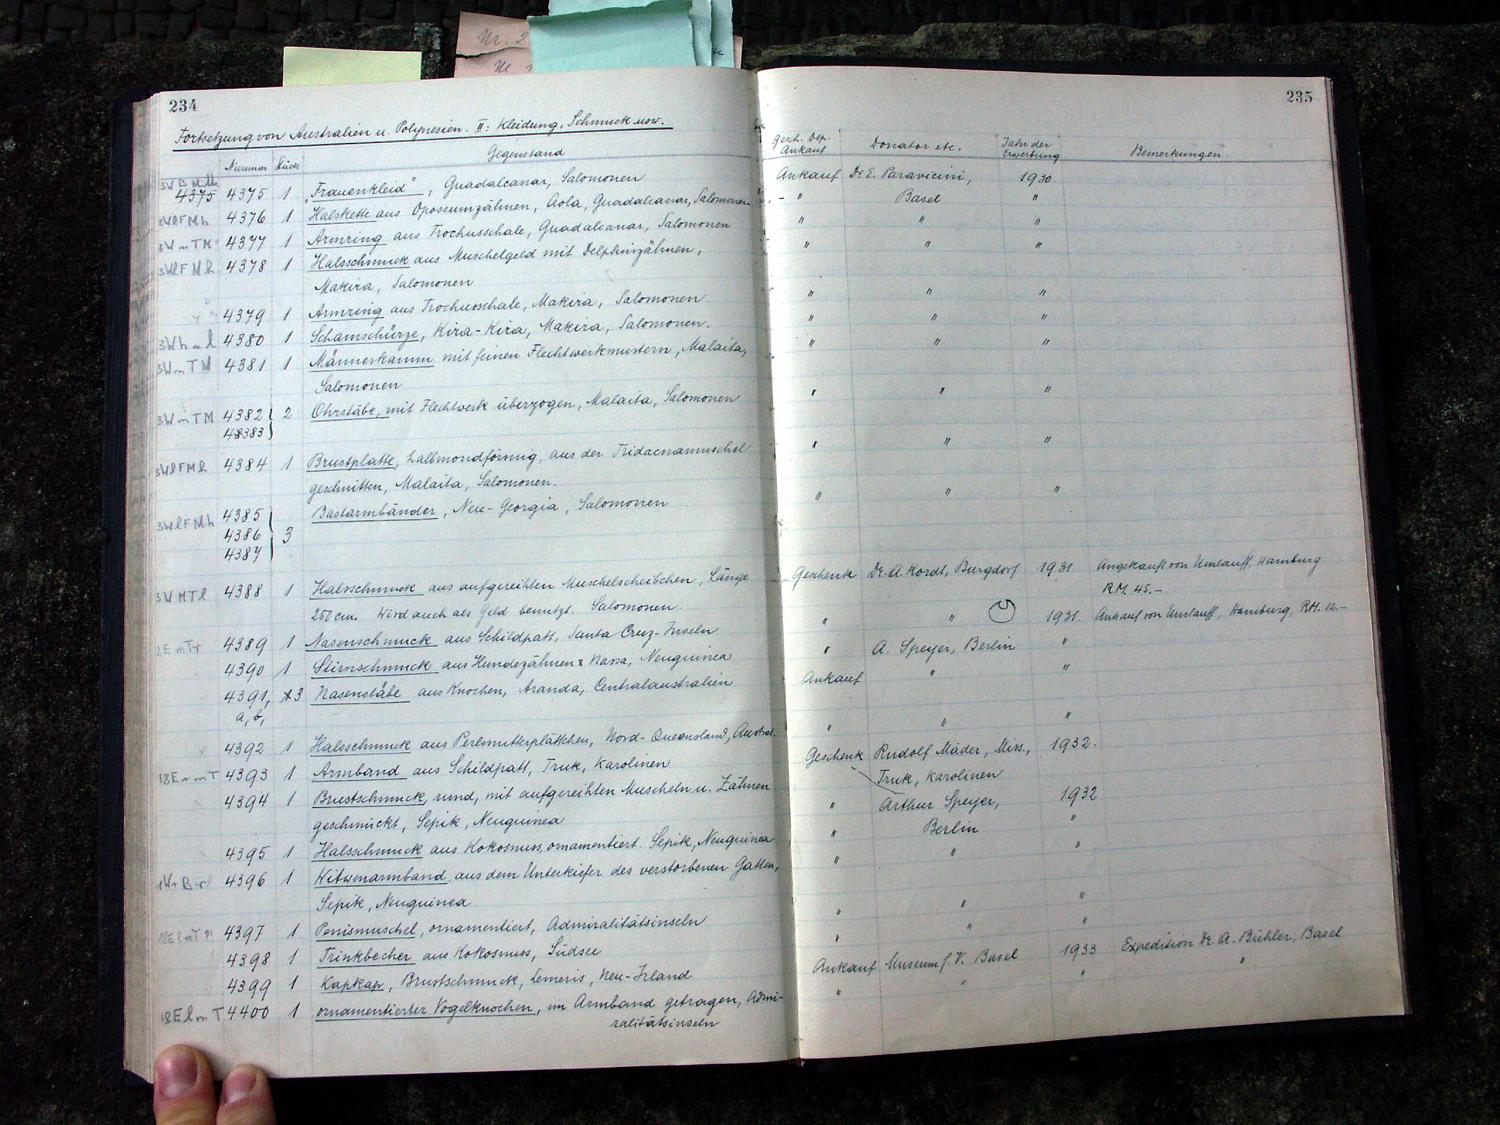 Nr. 2
234
Fortsetzung von Australien u. Polynesien. II: Kleidung, Schmuck usw.
Nummer Stück Gegenstand
4375 4375 1 "Frauenkleid", Guadalcanar, Salomonen
3WlFMh 4376 1 Halskette aus Opossumzähnen, Aola, Guadalcanar, Salomonen
3WmTM 4377 1 Armring aus Trochusschale, Guadalcanar, Salomonen
3WlFMh 4378 1 Halsschmuck aus Muschelgeld mit Delphinzähnen,
Makira, Salomonen
4379 1 Armring aus Trochusschale, Makira, Salomonen
4380 1 Schamschürze, Kira-Kira, Makira, Salomonen.
3WmTM 4381 1 Männerkamm mit feinen Flechtwerkmustern, Malaita,
Salomonen
3WmTM 4382 2 Ohrstäbe, mit Flechtwerk überzogen, Malaita, Salomonen
48383
3WlFMh 4384 1 Brustplatte, halbmondförmig, aus der Tridacnamuschel
geschnitten, Malaita, Salomonen.
3WlFMh 4385 Bastarmbänder, Neu-Georgia, Salomonen
4386 3
4387
3WMTl 4388 1 Halsschmuck aus aufgereihten Muschelscheibchen, Länge
250 cm. Wird auch als Geld benutzt. Salomonen
4389 1 Nasenschmuck aus Schildpatt, Santa Cruz-Inseln
4390 1 Stirnschmuck aus Hundezähnen & Nassa, Neuguinea
4391, 3 Nasenstäbe aus Knochen, Aranda, Centralaustralien
a, b,
4392 1 Halsschmuck aus Perlmutterplättchen, Nord-Queensland, Austral.
4393 1 Armband aus Schildpatt, Truk, Karolinen
4394 1 Brustschmuck, rund, mit aufgereihten Muscheln u. Zähnen
geschmückt, Sepik, Neuguinea
4395 1 Halsschmuck aus Kokosnuss, ornamentiert. Sepik, Neuguinea
4396 1 Witwenarmband, aus dem Unterkiefer des verstorbenen Gatten,
Sepik, Neuguinea
4397 1 Penismuschel, ornamentiert, Admiralitätsinseln
4398 1 Trinkbecher aus Kokosnuss, Südsee
4399 1 Kapkap, Brustschmuck, Lemeris, Neu-Irland
18ElmT 4400 1 ornamentierter Vogelknochen, im Armband getragen, Admi-
ralitätsinseln
235
Gesch. Dep. Ankauf Donator etc. Jahr der Erwerbung Bemerkungen.
Ankauf Dr. E. Paravicini, 1930
" Basel "
" " "
" " "
" " "
" " "
" " "
" " "
" " "
" " "
Geschenk Dr. A. Kordt, Burgdorf 1931 Angekauft von Umlauff, Hamburg
RM. 45.-
" " 1931. Ankauf von Umlauff, Hamburg, RM. 12.-
" A. Speyer, Berlin "
Ankauf " "
" " "
Geschenk Rudolf Mäder, Miss., 1932.
Truk, Karolinen
" Arthur Speyer, 1932
" Berlin "
" " "
" " "
" " "
Ankauf Museum f. V. Basel 1933 Expedition Dr. A. Bühler, Basel
" " " "